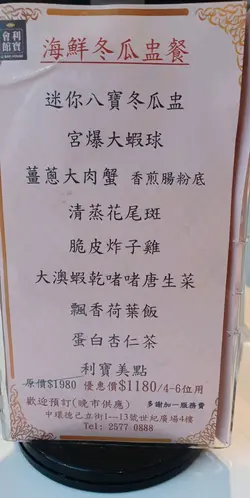 利寶會館
海鮮冬瓜盅餐
迷你八寶冬瓜盅
宮爆大蝦球
薑蔥大肉蟹 香煎腸粉底
清蒸花尾斑
脆皮炸子雞
大澳蝦乾啫啫唐生菜
飄香荷葉飯
蛋白杏仁茶
利寶美點
原價$1980 優惠價$1180/4-6位用
歡迎預訂(晚市供應) 多謝加一服務費
中環德己立街1--13號世紀廣場4樓
Tel: 2577 0888